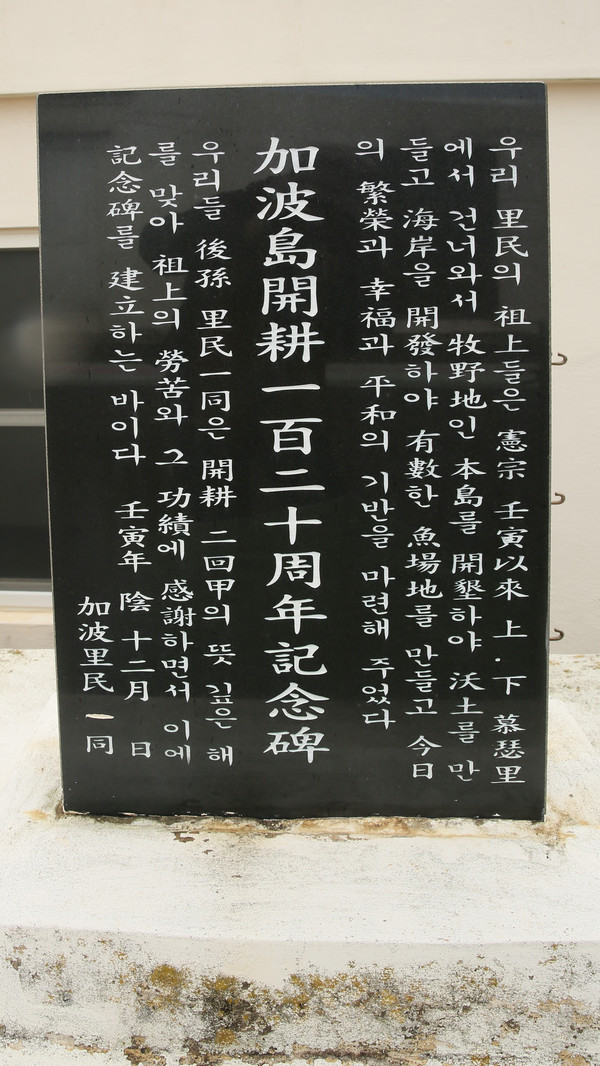 우리 里民의 祖上들은 憲宗 壬寅以來 上·下 慕瑟里
에서 건너와서 牧野地인 本島를 開墾하야 沃土를 만
들고 海岸을 開發하야 有數한 魚場地를 만들고 今日
의 繁榮과 幸福과 平和의 기반을 마련해 주었다
加波島開耕一百二十周年記念碑
우리들 後孫 里民一同은 開耕 二回甲의 뜻 깊은 해
를 맞아 祖上의 勞苦와 그 功績에 感謝하면서 이에
記念碑를 建立하는 바이다 壬寅年 陰 十二月 日
加波里民 一同